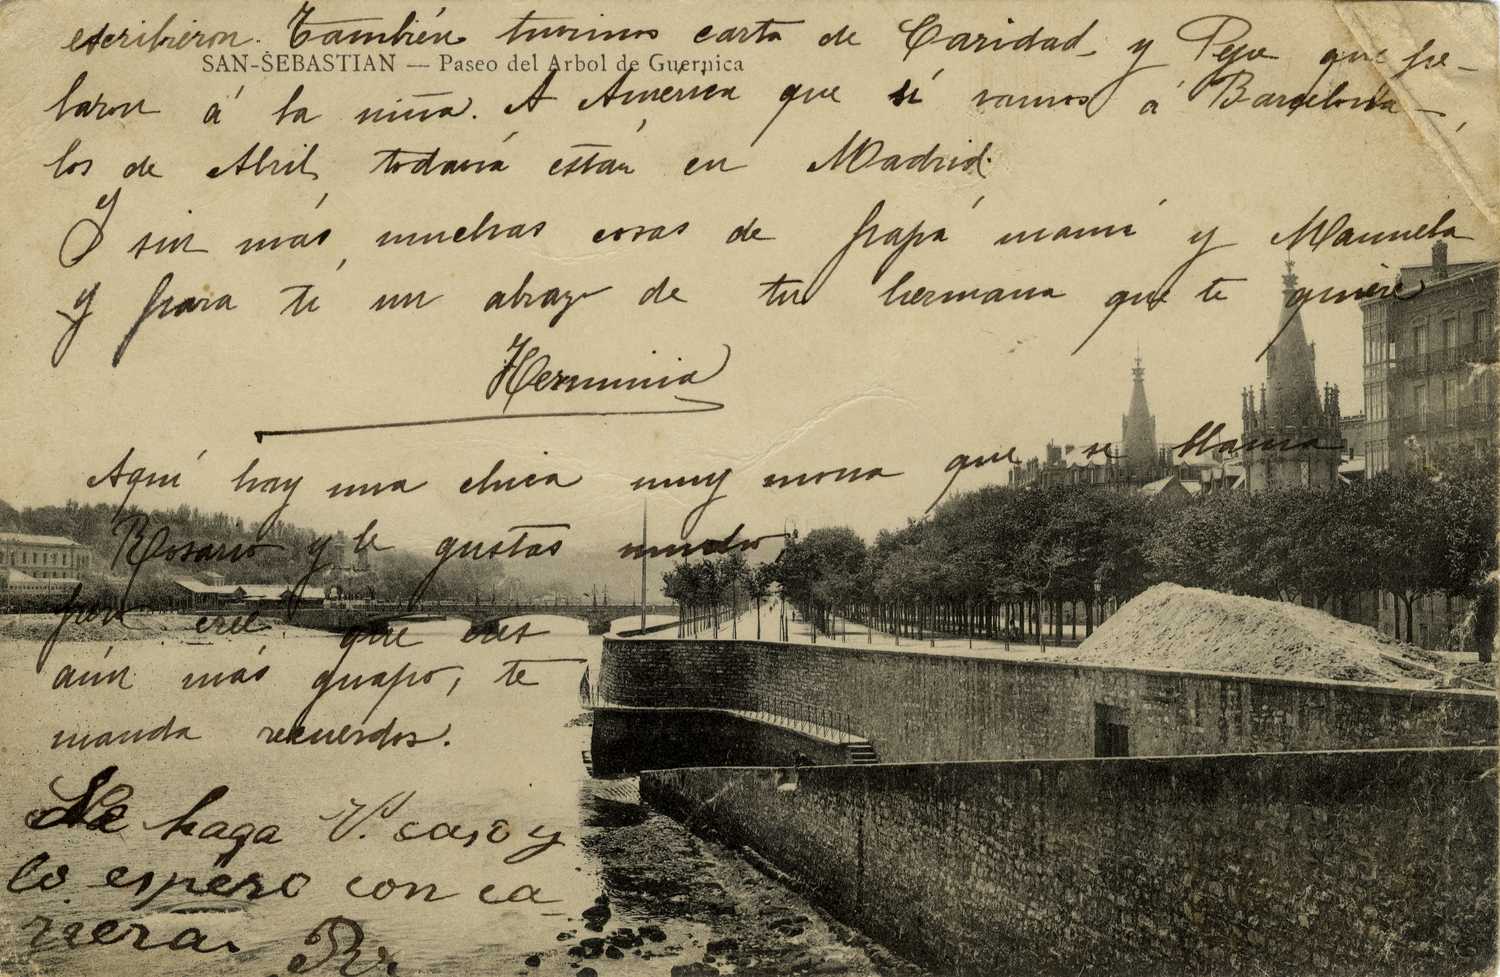 escribieron. También tuvimos carta de Caridad y Pepe que fe-
SAN-SEBASTIAN — Paseo del Arbol de Guernica
laron á la niña. A América que si vamos á Barcelona
los de Abril, todavía están en Madrid.
Y sin más, muchas cosas de papá mamá y Manuela
y para ti un abrazo de tu hermana que te quiere
Herminia
Aquí hay una chica muy mona que se llama
Rosario y le gustas mucho,
pero cree que eres
aún más guapo, te
manda recuerdos.
No haga V. caso y
lo espero con ca-
rrera. Rr.